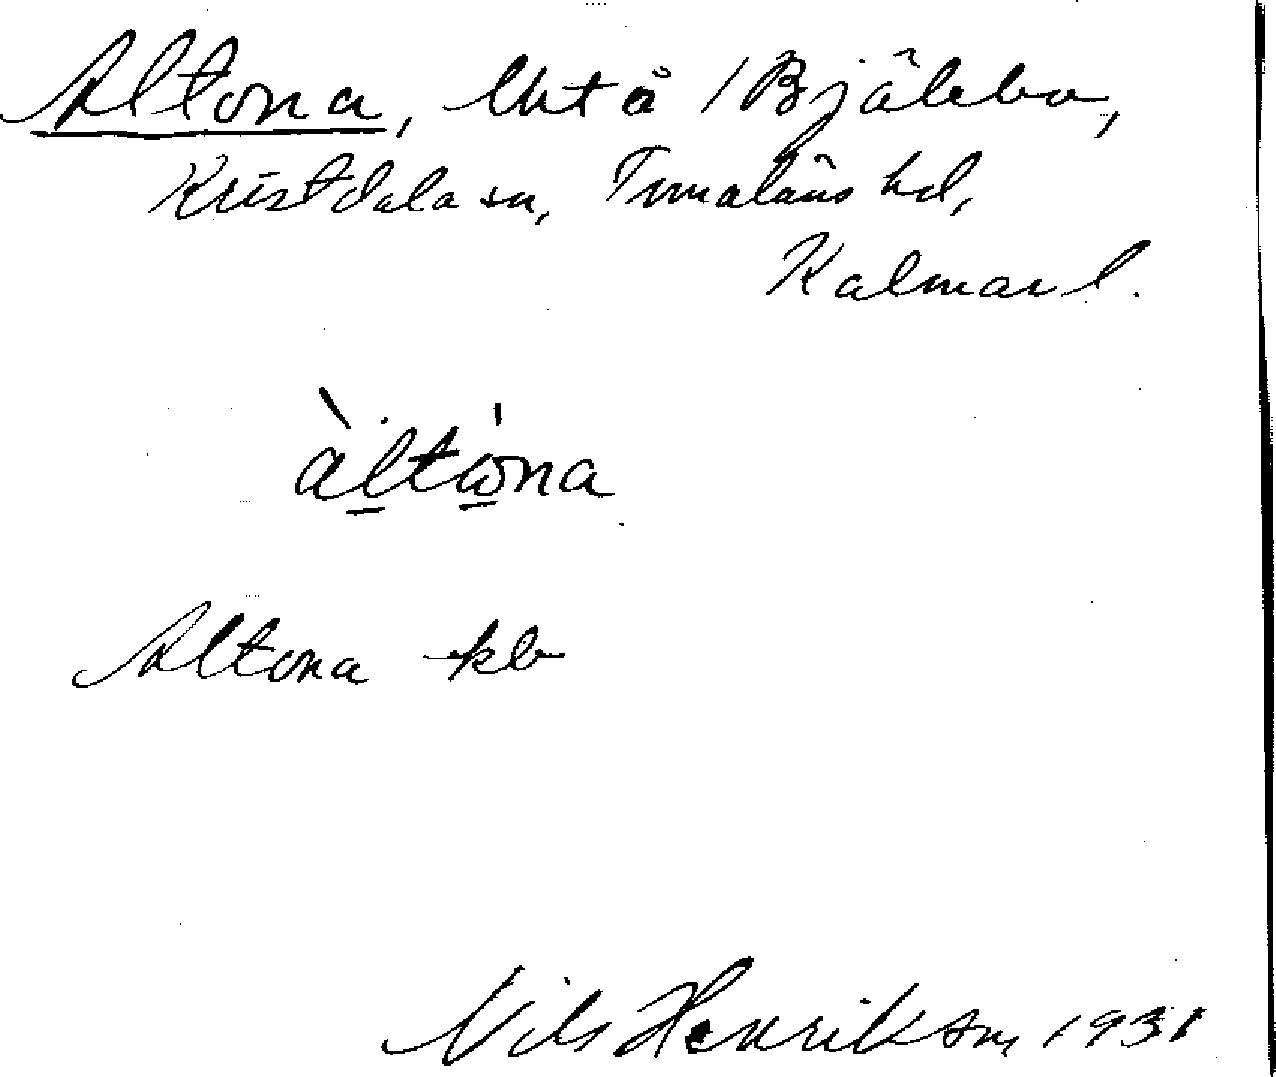 Altona, lht å 1 Bjälebo,
Kristdala sn, Tunaläns hd,
Kalmar l.
àltòna
Altona kb
Nils Henrikson, 1931